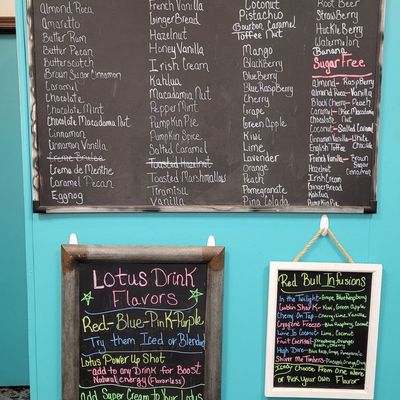 Almond Roca
Amaretto
Butter Rum
Butter Pecan
Butterscotch
Brown Sugar Cinnamon
Caramel
Chocolate
Chocolate Mint
Chocolate Macadamia Nut
Cinnamon
Cinnamon Vanilla
Creme Brulee
Creme de Menthe
Caramel Pecan
Eggnog
French Vanilla
GingerBread
Hazelnut
Honey Vanilla
Irish Cream
Kahlua
Macadamia Nut
PepperMint
Pumpkin Pie
Pumpkin Spice
Salted Caramel
Toasted Hazelnut
Toasted Marshmallows
Tiramisu
Vanilla
Coconut
Pistachio
Bourbon Caramel
Toffee Nut
Mango
BlackBerry
BlueBerry
Blue RaspBerry
Cherry
Grape
Green Apple
Kiwi
Lime
Lavender
Orange
Peach
Pomegranate
Pina Colada
Root Beer
StrawBerry
HuckleBerry
Watermelon
Banana
Sugar Free
Almond - RaspBerry
Almond Roca - Vanilla
Black Cherry - Peach
Caramel - Macadamia
Chocolate Nut
Coconut - Salted Caramel
Cinnamon Vanilla - White
English Toffee Chocolate
French Vanilla - Brown
Hazelnut Sugar
Irish Cream Cinnamon
GingerBread
Kahlua
Pumpkin Pie
Lotus Drink
Flavors
Red - Blue - Pink - Purple
Try them Iced or Blended
Lotus Power Up Shot
- add to any Drink for Boost
Natural energy (Flavorless)
Add Super Cream to Your Lotus
Red Bull Infusions
In the Twilight - Grape, Blue Raspberry
Goblin Shark - Kiwi, Green Apple
Cherry On Top - Cherry, Lime, Vanilla
Cryogene Freeze - Blue Raspberry, Coconut
Lime To Coconut - Lime, Coconut
Fruit Cocktail - Strawberry, Orange
Peach, Cherry
High Dive - Blue Rasp, Grape, Pomegranate
Shiver Me Timbers - Pineapple, Orange
Iced Choose From Above
or Pick Your Own Flavor